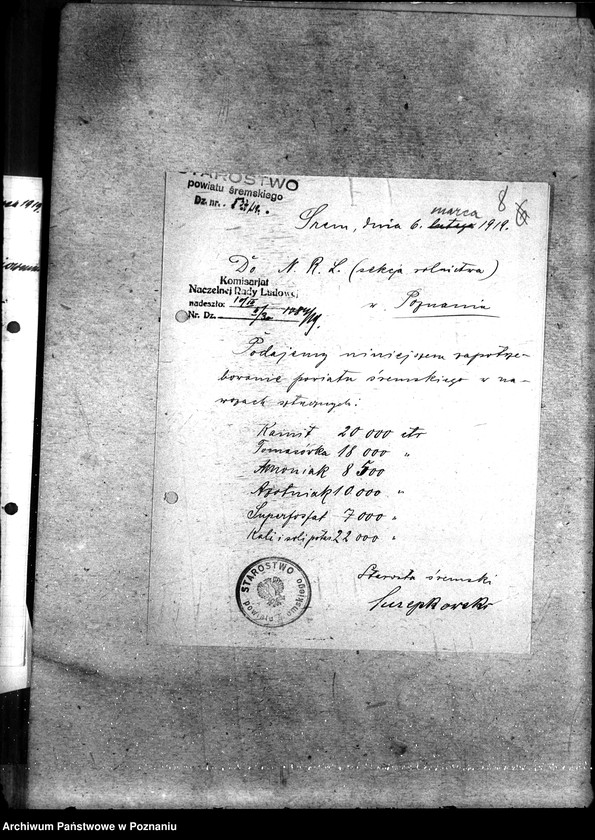 STAROSTWO
powiatu śremskiego
Dz. nr.
8 6
marca
Śrem, dnia 6. lutego 1919.
Do N. R. L. (sekcja rolnictwa)
Komisarjat
Naczelnej Rady Ludowej
nadeszło: 10/III
Nr. Dz.
w Poznaniu
Podajemy niniejszem zapotrze-
bowanie powiatu śremskiego w na-
wozach sztucznych:
Kainit 20 000 ctr
Tomasówka 18 000 "
Amoniak 8 500
Azotniak 10.000 "
Superfosfat 7 000 "
Kali i soli potas 22 000 "
Starosta śremski
STAROSTWO
powiatu śremskiego
1919.
Archiwum Państwowe w Poznaniu